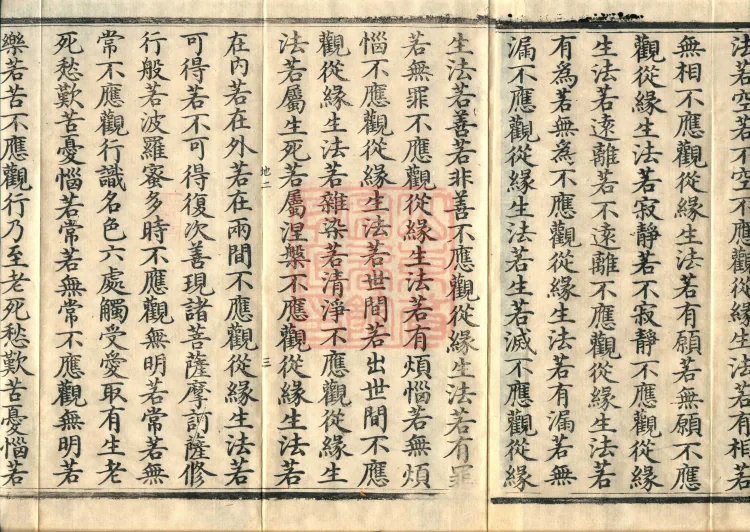 法若空若不空不應觀從緣生法若有相若
無相不應觀從緣生法若有願若無願不應
觀從緣生法若寂靜若不寂靜不應觀從緣
生法若遠離若不遠離不應觀從緣生法若
有為若無為不應觀從緣生法若有漏若無
漏不應觀從緣生法若生若滅不應觀從緣
生法若善若非善不應觀從緣生法若有罪
若無罪不應觀從緣生法若有煩惱若無煩
惱不應觀從緣生法若世間若出世間不應
觀從緣生法若雜染若清淨不應觀從緣生
法若屬生死若屬涅槃不應觀從緣生法若
地二
三
在內若在外若在兩間不應觀從緣生法若
可得若不可得復次善現諸菩薩摩訶薩修
行般若波羅蜜多時不應觀無明若常若無
常不應觀行識名色六處觸受愛取有生老
死愁歎苦憂惱若常若無常不應觀無明若
樂若苦不應觀行乃至老死愁歎苦憂惱若